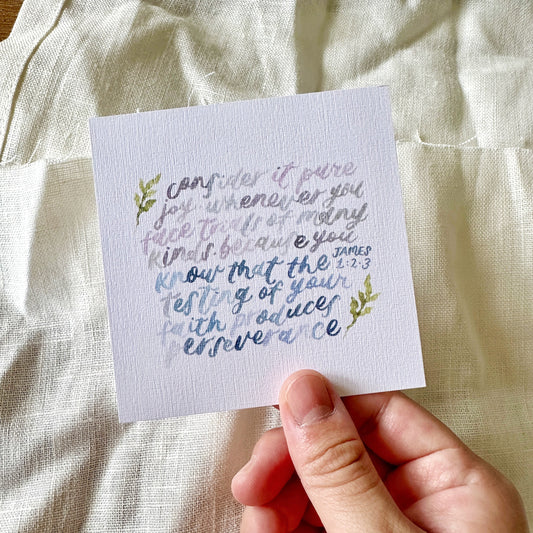 consider it pure
joy, whenever you
face trials of many
kinds, because you
know that the
testing of your
faith produces
perseverance
JAMES
1:2-3